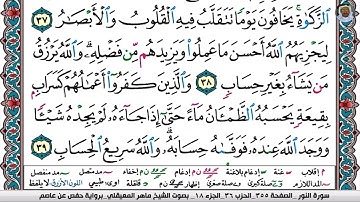 ٱلزَّكَوٰةِ يَخَافُونَ يَوْمًا تَتَقَلَّبُ فِيهِ ٱلْقُلُوبُ وَٱلْأَبْصَٰرُ ٣٧
لِيَجْزِيَهُمُ ٱللَّهُ أَحْسَنَ مَا عَمِلُوا۟ وَيَزِيدَهُم مِّن فَضْلِهِۦ ۗ وَٱللَّهُ يَرْزُقُ
مَن يَشَآءُ بِغَيْرِ حِسَابٍ ٣٨ وَٱلَّذِينَ كَفَرُوٓا۟ أَعْمَٰلُهُمْ كَسَرَابٍۭ
بِقِيعَةٍ يَحْسَبُهُ ٱلظَّمْـَٔانُ مَآءً حَتَّىٰٓ إِذَا جَآءَهُۥ لَمْ يَجِدْهُ شَيْـًٔا
وَوَجَدَ ٱللَّهَ عِندَهُۥ فَوَفَّىٰهُ حِسَابَهُۥ ۗ وَٱللَّهُ سَرِيعُ ٱلْحِسَابِ ٣٩
سورة النور _ الصفحة ٣٥٥_ الحزب ٣٦_ الجزء ١٨_ بصوت الشيخ ماهر المعيقلي_برواية حفص عن عاصم